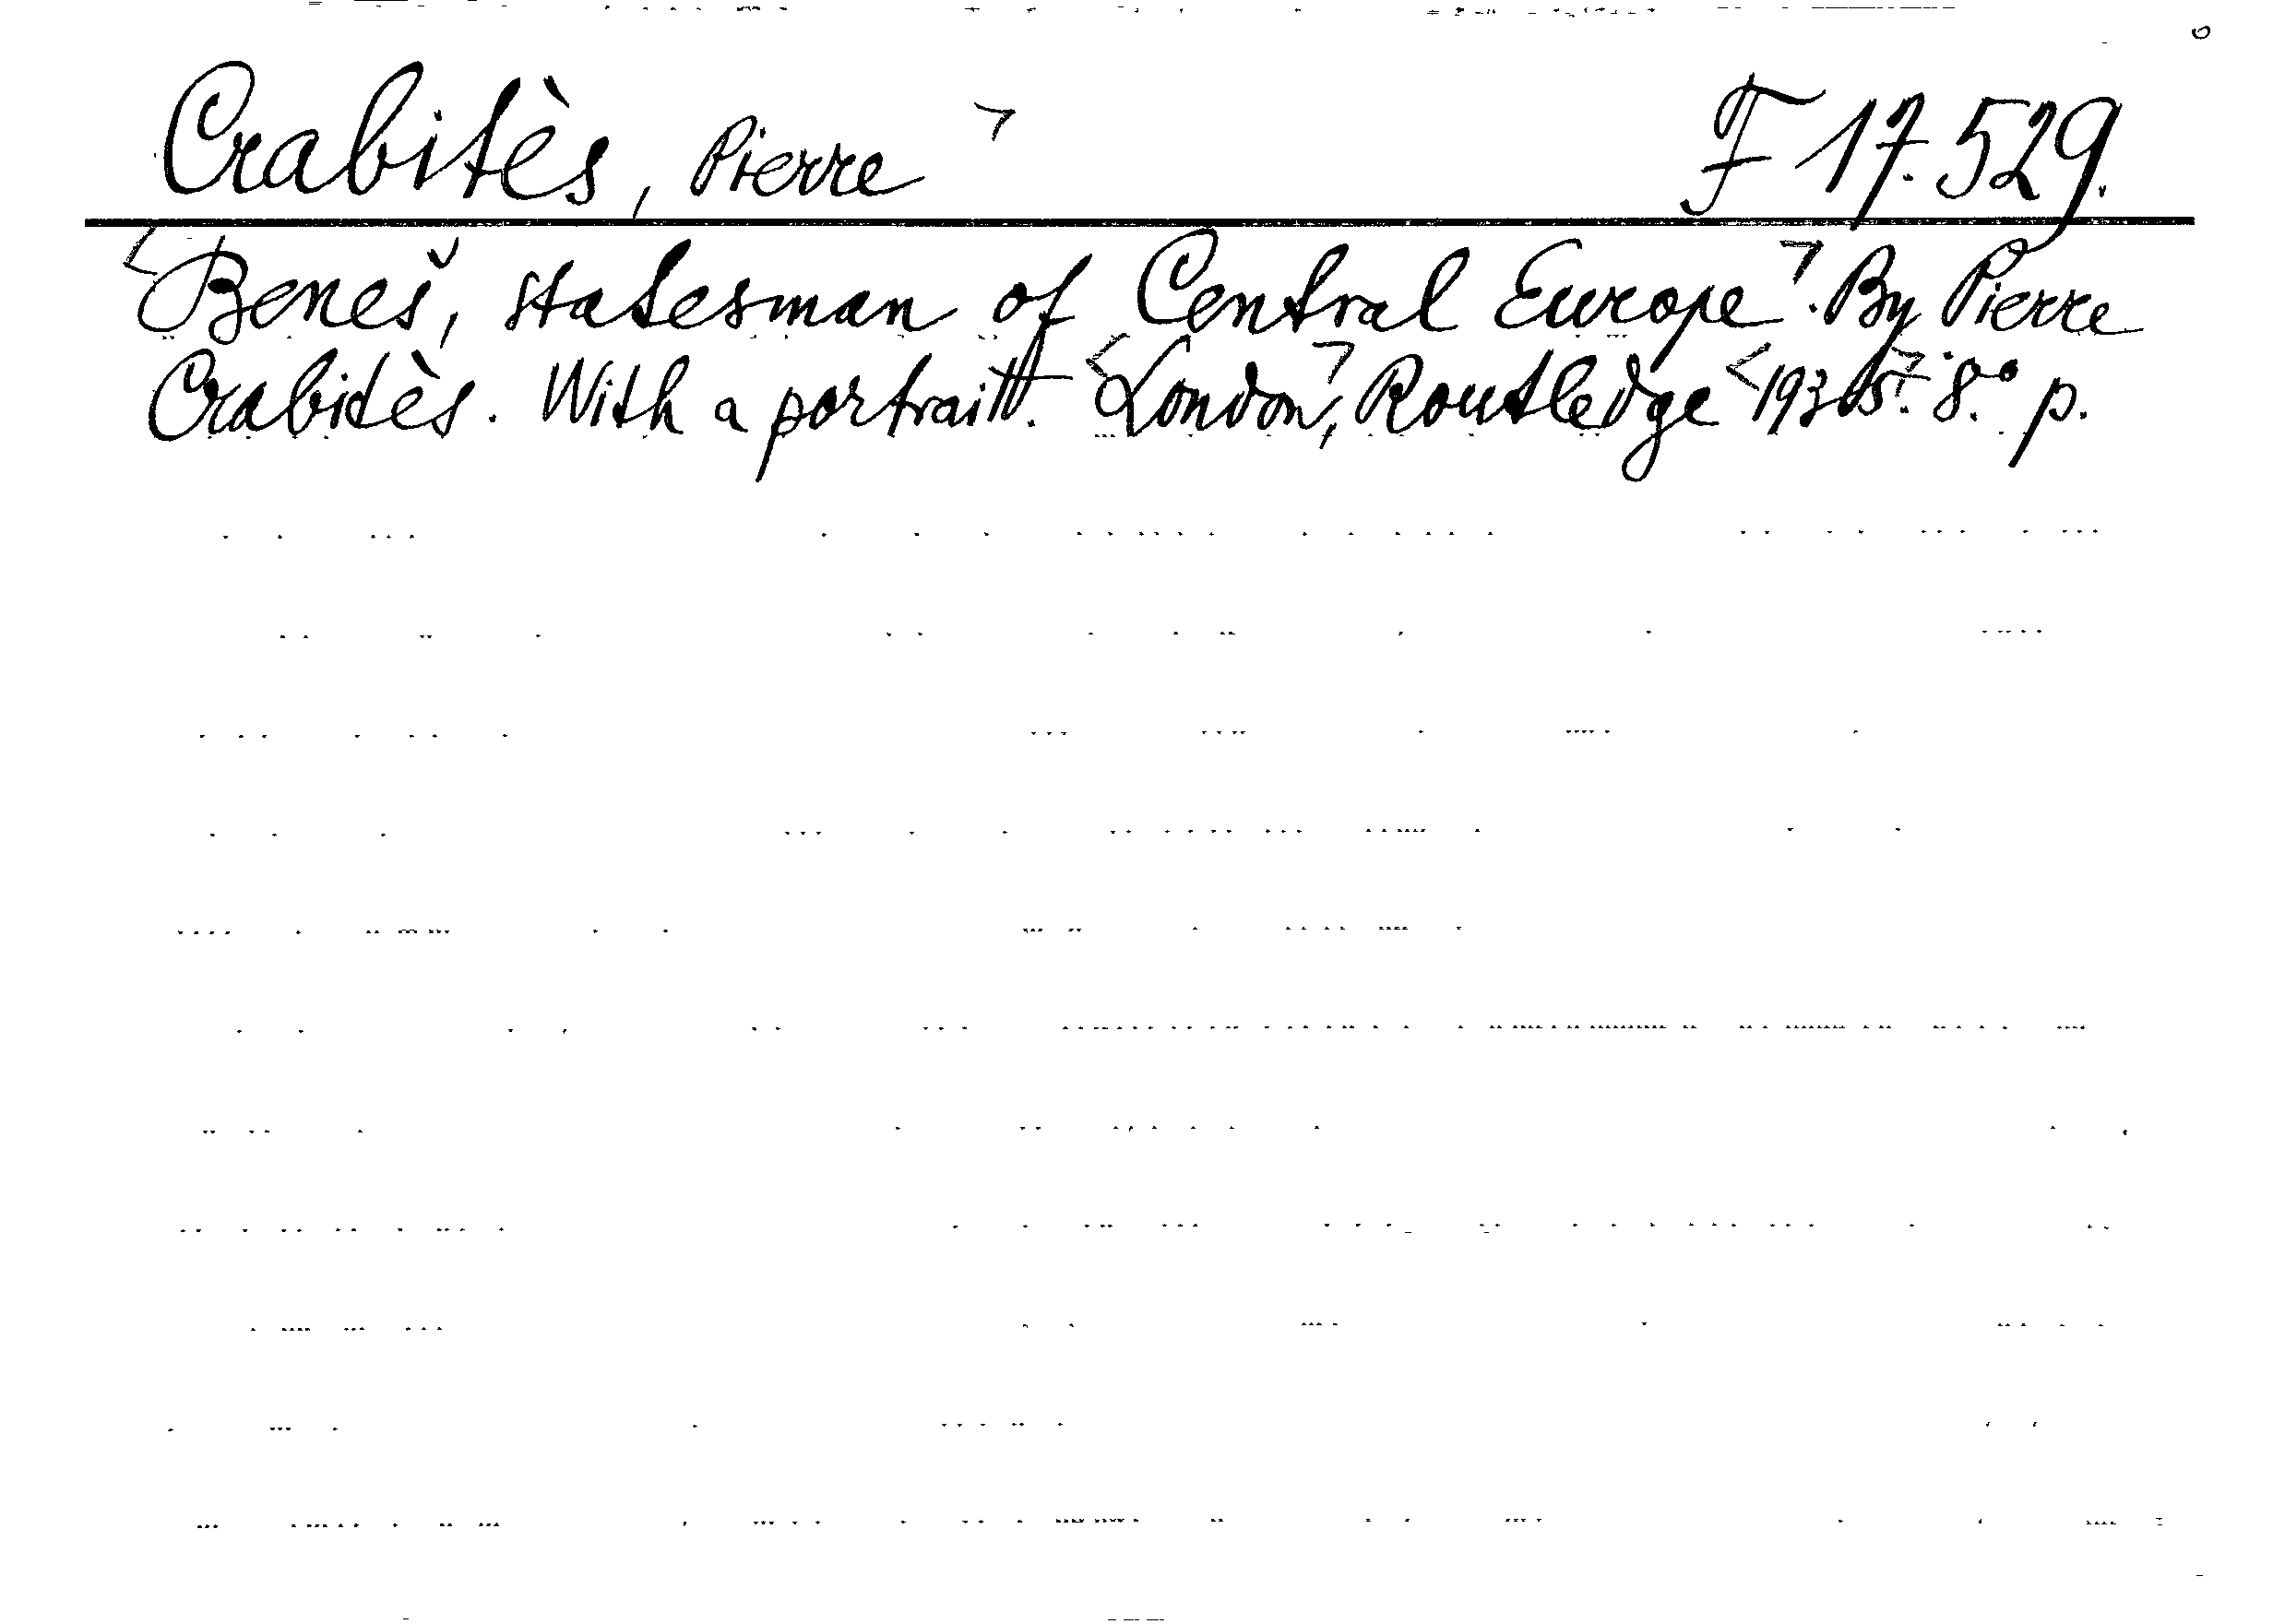 Crabitès, Pierre ⌝ F 17.529.
⌜Beneš, statesman of Central Europe⌝. By Pierre
Crabitès. With a portrait. ⌜London⌝, Routledge ⌜1935⌝. 8.° p.